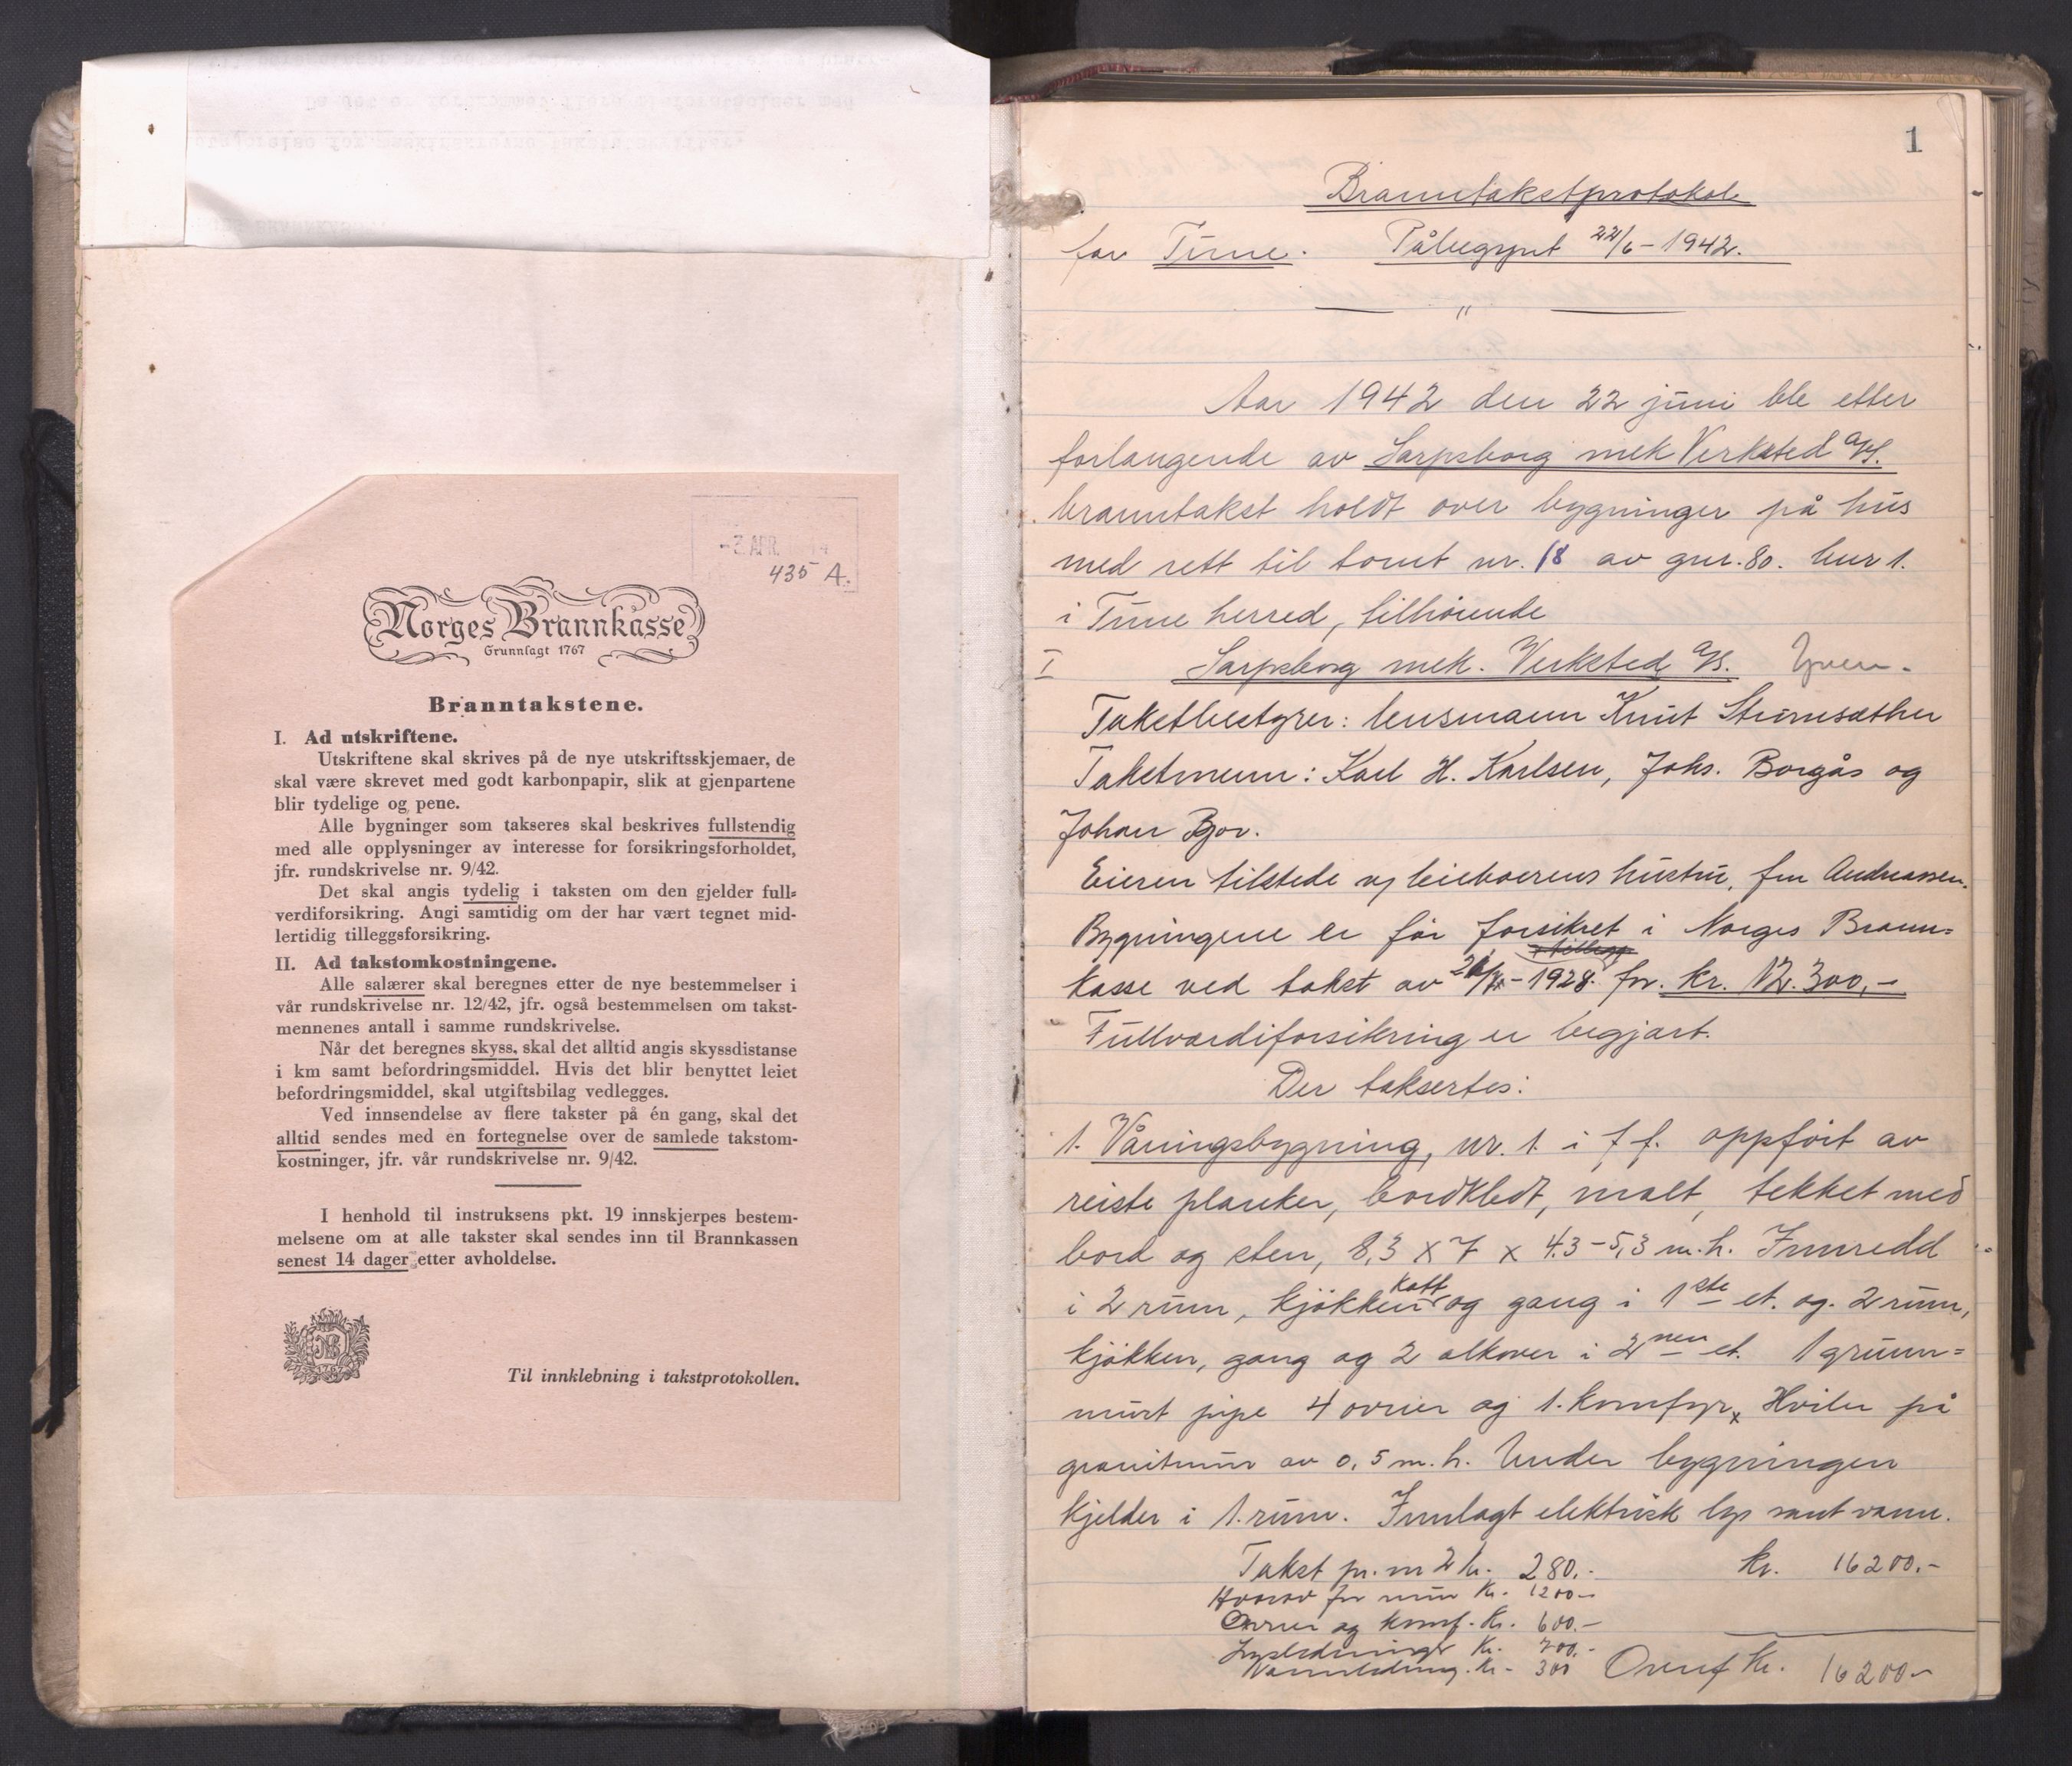 -3. APR.
435 A.
Norges Brannkasse
Grunnlagt 1767
Branntakstene.
I. Ad utskriftene.
Utskriftene skal skrives på de nye utskriftsskjemaer, de
skal være skrevet med godt karbonpapir, slik at gjenpartene
blir tydelige og pene.
Alle bygninger som takseres skal beskrives fullstendig
med alle opplysninger av interesse for forsikringsforholdet,
jfr. rundskrivelse nr. 9/42.
Det skal angis tydelig i taksten om den gjelder full-
verdiforsikring. Angi samtidig om der har vært tegnet mid-
lertidig tilleggsforsikring.
II. Ad takstomkostningene.
Alle salærer skal beregnes etter de nye bestemmelser i
vår rundskrivelse nr. 12/42, jfr. også bestemmelsen om takst-
mennenes antall i samme rundskrivelse.
Når det beregnes skyss, skal det alltid angis skyssdistanse
i km samt befordringsmiddel. Hvis det blir benyttet leiet
befordringsmiddel, skal utgiftsbilag vedlegges.
Ved innsendelse av flere takster på én gang, skal det
alltid sendes med en fortegnelse over de samlede takstom-
kostninger, jfr. vår rundskrivelse nr. 9/42.
I henhold til instruksens pkt. 19 innskjerpes bestem-
melsene om at alle takster skal sendes inn til Brannkassen
senest 14 dager etter avholdelse.
Til innklebning i takstprotokollen.
1
Branntakstprotokol
for Tune. Påbegynt 22/6-1942.
Aar 1942 den 22 juni ble etter
forlangende av Sarpsborg mek Verksted A/S.
branntakst holdt over bygninger på hus
med rett til tomt nr. 18 av gnr. 80. bnr 1.
i Tune herred, tilhörende
I Sarpsborg mek. Verksted A/S.
Takstbestyrer: lensmann Knut Strømsæther
Takstmenn: Karl H. Karlsen, Johs. Borgås og
Johan Bjor.
Eieren tilstede v/ leieboerens hustru, fru Andreassen.
Bygningene er för forsikret i Norges Brann-
kasse ved takst av 1928 for kr. 12.300,-
Fullverdiforsikring er begjært.
Der taksertes:
1. Våningsbygning, nr. 1. i f. f. oppfört av
reiste planker, bordkledt, malt, tekket med
bord og sten, 8,3 x 7 x 4.3-5,3 m.h. Innredd
i 2 rum, kjökken kott og gang i 1ste et. og. 2 rum,
kjökken, gang og 2 alkover i 2nen et. 1 grunn-
murt pipe 4 ovner og 1. komfyr x Hviler på
granitmur av 0,5 m.h. Under bygningen
kjelder i 1. rum. Innlagt elektrisk lys samt vann.
Takst pr. m2 kr. 280.- kr. 16200.-
Hvorav for mur Kr. 1200-
Ovner og komf. Kr. 600.-
Lysledninger Kr. 700.-
Vannledning. Kr- 300 Overf Kr. 16200-